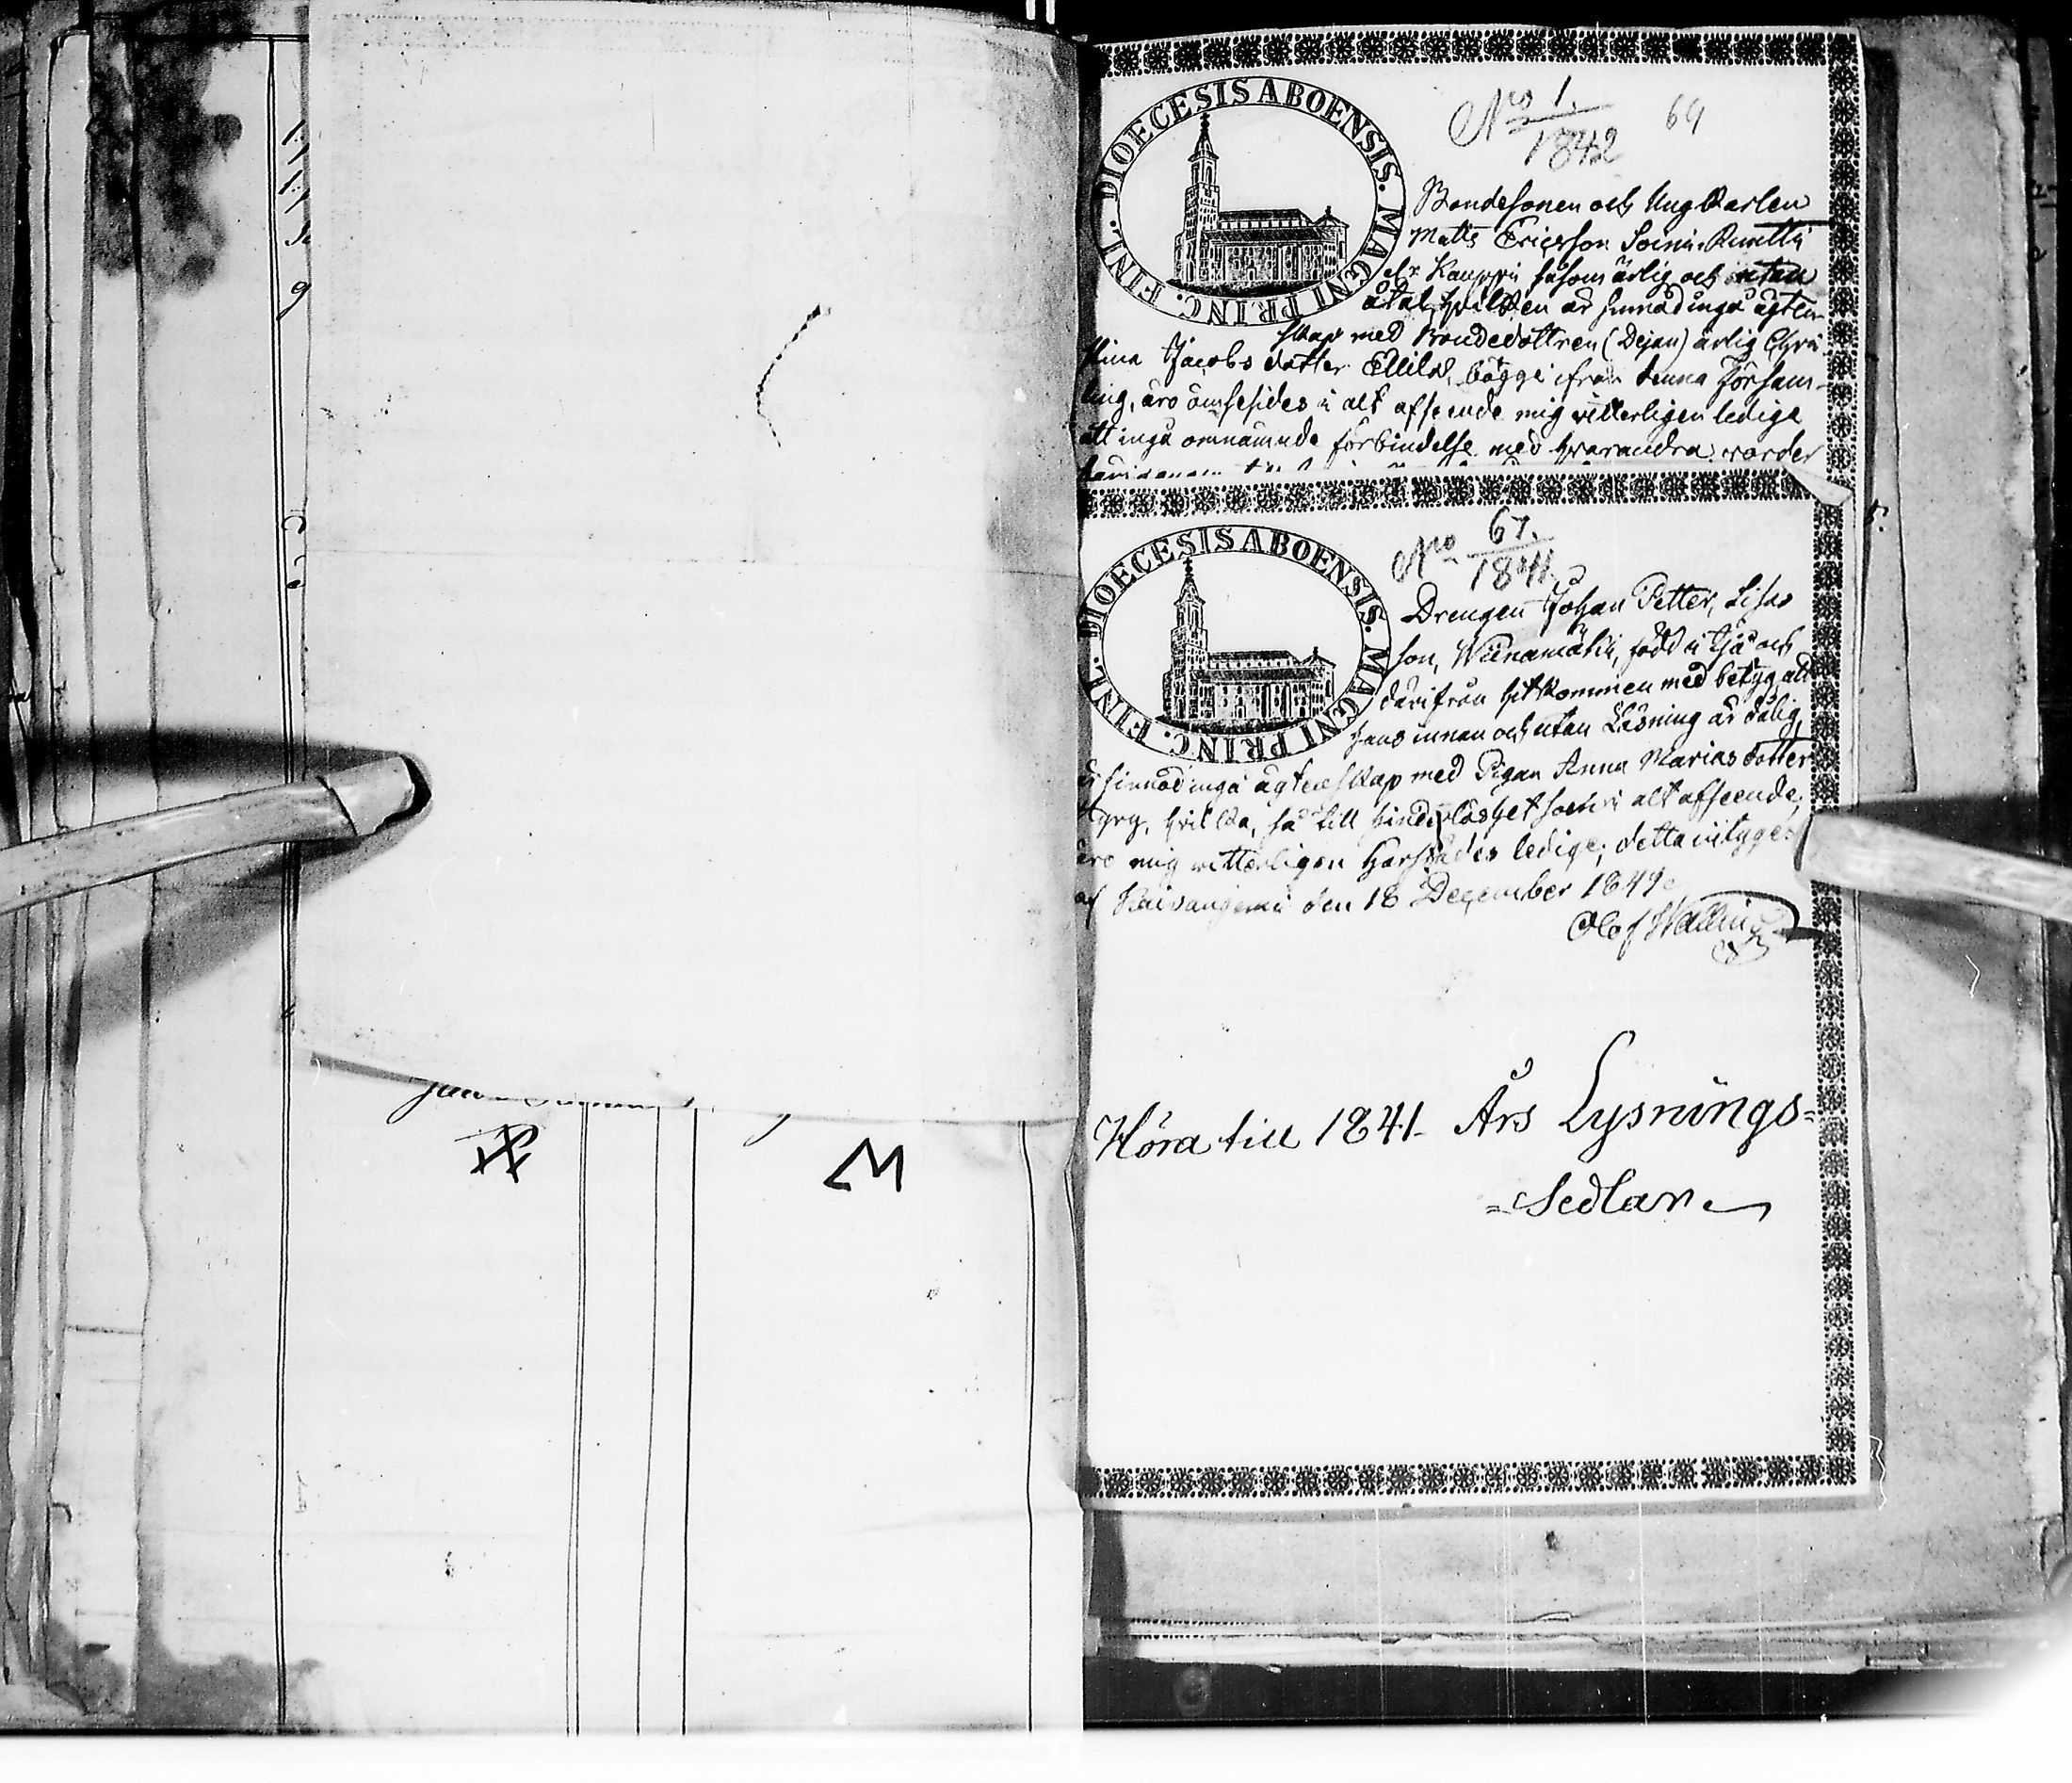 DIOECESIS ABOENSIS. MAGNI PRINC. FINL.
No 1.
1842
64
Bondesonen och Ungkarlen
Matts Ericsson Soini
Kauppi såsom ärlig och utan
åtal, hvilken är sinnad ingå ägten-
skap med Bondedottren (Dejan) ärlig Chri-
stina Jacobs dotter bägge ifrån denna Försam-
ling, äro ömsesides i alt afseende mig vitterligen ledige
att ingå omnämnde förbindelse med hvarandra, varder
DIOECESIS ABOENSIS. MAGNI PRINC. FINL.
No 67.
1841.
Drengen Johan Petter, Lisas
son, Viinamäki, född i och
därifrån hitkommen med betyg att
hans innan och utan Läsning är dålig,
är sinnad ingå ägtenskap med Pigan Anna Marias dotter
hvilka, så till hinderlöshet som i alt afseende,
äro mig vitterligen ledige; detta intygas
af den 18 December 1841.
Olof Wallin
Höra till 1841 Års Lysnings-
-Sedlar